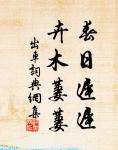 春日遲遲
卉木萋萋
出車詞典網集